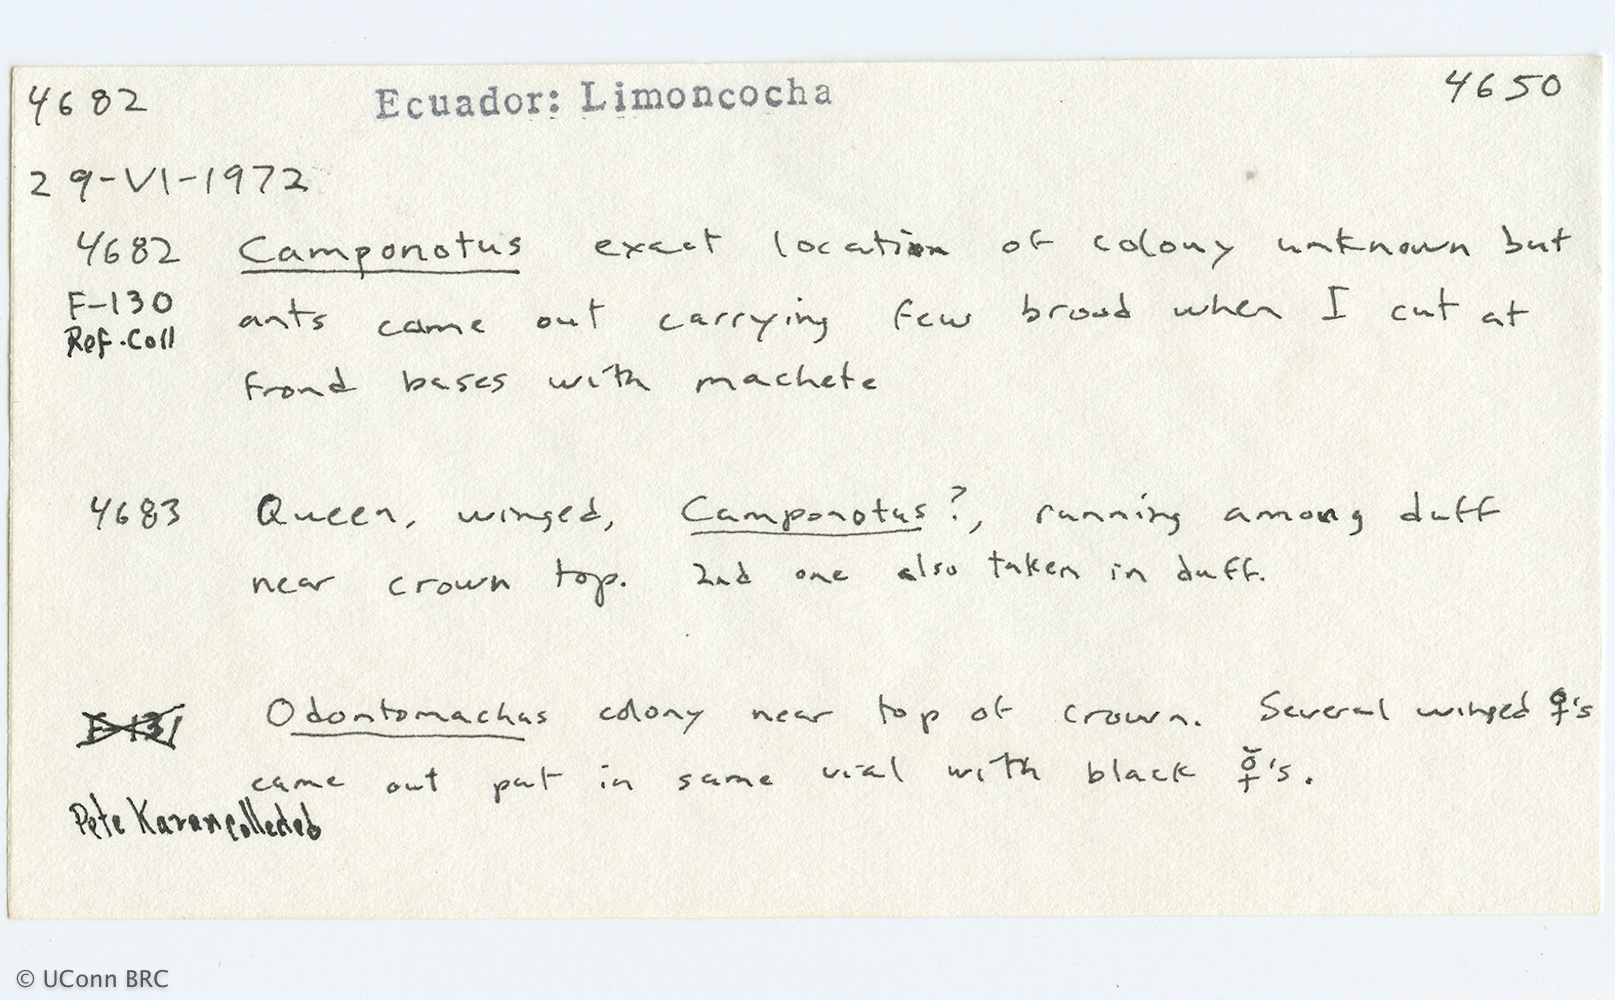 4682 Ecuador: Limoncocha 4650
29-VI-1972
4682 Camponotus exact location of colony unknown but
F-130 ants came out carrying few brood when I cut at
Ref. Coll
frond bases with machete
4683 Queen, winged, Camponotus?, running among duff
near crown top. 2nd one also taken in duff.
F-131 Odontomachus colony near top of crown. Several winged ♀'s
came out put in same vial with black ☿'s.
Pete Karam collected
© UConn BRC